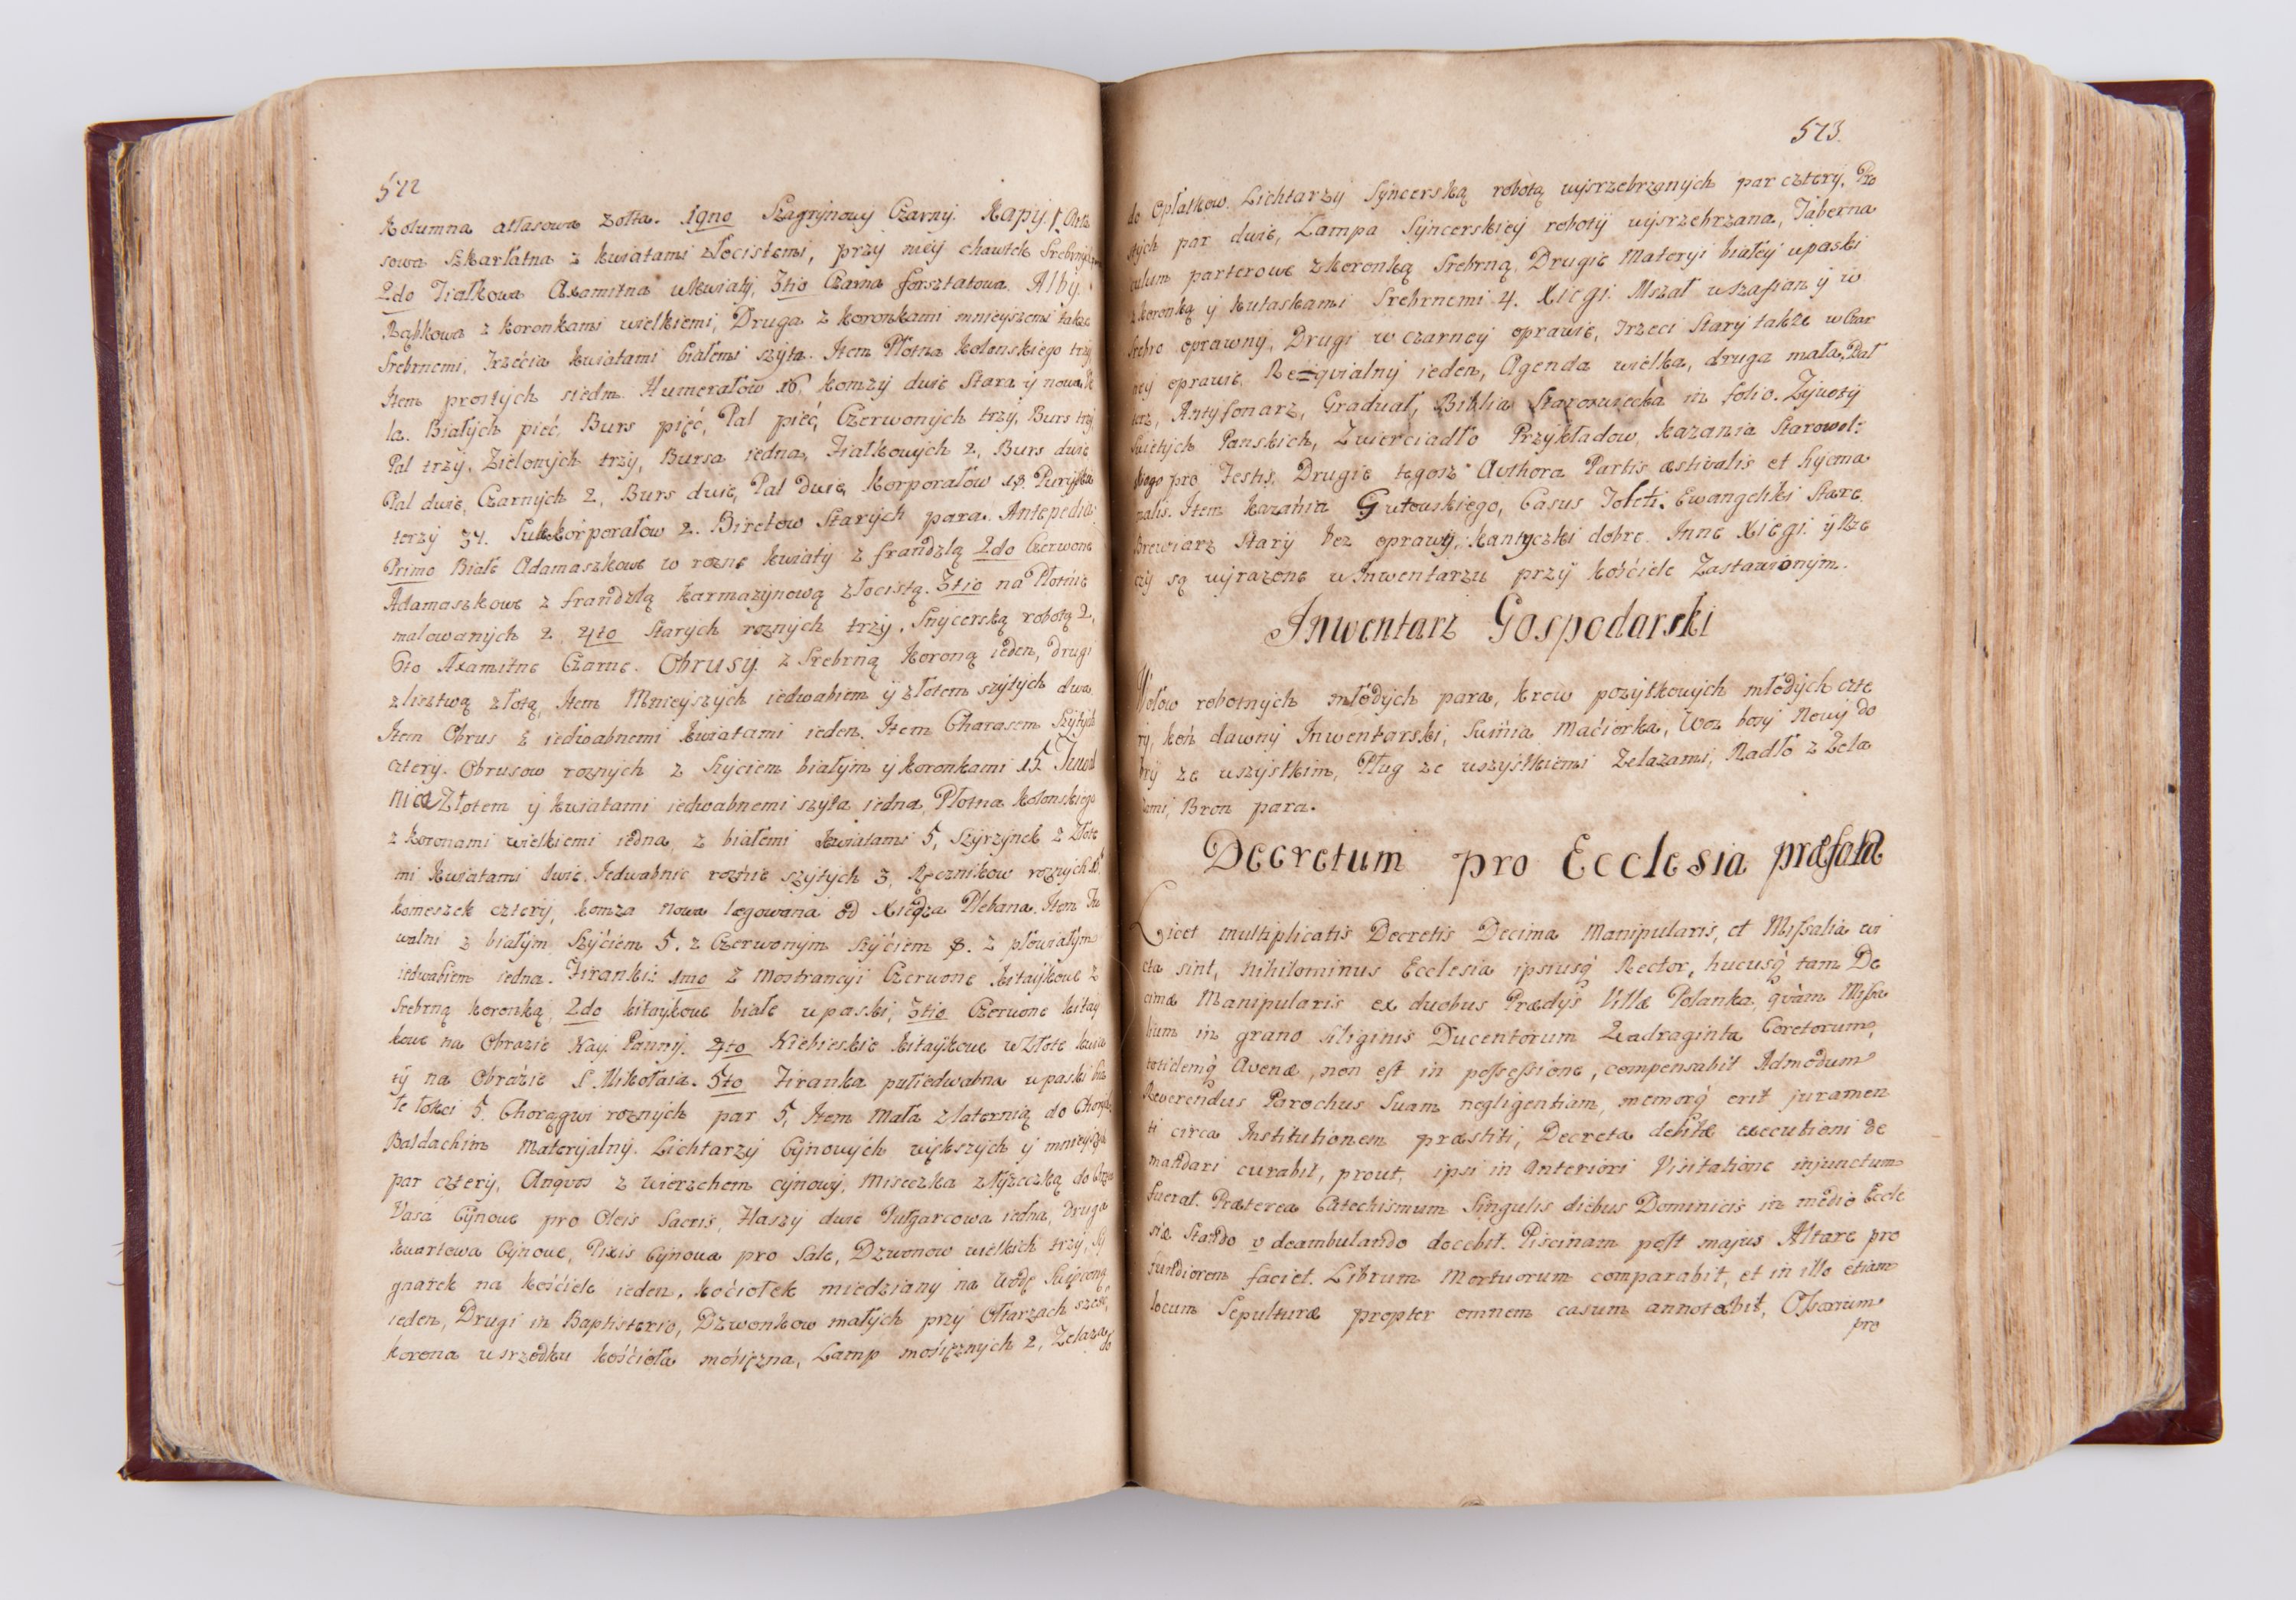 572
Kolumna atłasowa żołta. 19no Szagrynowy Czarny. Kapy.
sowa Szkarłatna z kwiatami złocistemi, przy niey
2do Fiałkowa Axamitna w kwiaty, 3tio Czarna forsztatowa. Alby.
Rąbkowa z koronkami wielkiemi, Druga z koronkami mnieyszemi także
Srebrnemi, Trzecia kwiatami białemi szyta. Item Płotna Kolenskiego trzy
Item prostych siedm. Humerałow 16, komzy dwie Stara y nowa
la. Białych pięć, Burs pięć, Pal pięć, Czerwonych trzy, Burs trzy,
Pal trzy, Zielonych trzy, Bursa iedna, Fiałkowych 2, Burs dwie
Pal dwie, Czarnych 2, Burs dwie, Pal dwie, Korporałow 18. Puryfika
terzy 34. Sukkorporałow 2. Biretow Starych para. Antepedia
Primo Białe Adamaszkowe w rozne kwiaty z frandzlą 2do Czerwone
Adamaszkowe z frandzlą karmazynową złocistą. 3tio na Płotnie
malowanych 2. 4to Starych roznych trzy, Snycerską robotą 2,
6to Axamitne Czarne. Obrusy z Srebrną Koroną ieden, drugi
z lisztwą złotą, Item Mnieyszych iedwabiem y złotem szytych dwa
Item Obrus z iedwabnemi kwiatami ieden. Item Charasem Szytych
cztery. Obrusow roznych z Szyciem białym y koronkami 15. Tuwal
nia Złotem y kwiatami iedwabnemi szyta iedna, Płotna Kolenskiego
z koronami wielkiemi iedna, z białemi kwiatami 5, Szyrzynek z złote
mi kwiatami dwie. Iedwabnie roznie szytych 3, Ręcznikow roznych
komeszek cztery, komza nowa legowana od Xiędza Plebana. Item Tu
walni z białym Szyciem 5. z Czerwonym szyciem 8. z płowiałym
iedwabiem iedna. Firanki: 1mo z Monstrancyi Czerwone kitaykowe z
Srebrną koronką, 2do kitaykowe białe w paski, 3tio Czerwone kitay
kowe na Obrazie Nay. Panny. 4to Niebieskie kitaykowe w Złote kwia
ty na Obrazie S. Mikołaia. 5to Firanka pułiedwabna w paski
łokci 5. Chorągwi roznych par 5, Item mała z laternią do
Baldachim Materyalny. Lichtarzy Cynowych większych y mnieyszych
par cztery, z wierzchem cynowy, Miseczka z łyżeczką do
Vasa Cynowe pro Oleis Sacris, Flaszy dwie Pułgarcowa iedna, Druga
kwartowa Cynowe, Pixis Cynowa pro Sale, Dzwonow wielkich trzy, Sy
gnarek na Kościele ieden, kociołek miedziany na Wodę Swięconą
ieden, Drugi in Baptisterio, Dzwonkow małych przy Ołtarzach sześć,
korona w srzodku kościoła mosiężna, Lamp mosiężnych 2, Zelaza
do
573.
do Opłatkow. Lichtarzy Syncerską robotą wysrzebrzonych par cztery, Pro
stych par dwie, Lampa Syncerskiey roboty wysrzebrzana, Taberna
culum parterowe z koronką Srebrną, Drugie Materyi białey w paski
z koronką y kutaskami Srebrnemi 4. Xiegi. Mszał w szafian y w
Srebro oprawny, Drugi w czarney oprawie, Trzeci Stary także w Czar
ney oprawie, Requialny ieden, Agenda wielka, druga mała, Psał
terz, Antyfonarz, Graduał, Biblia Staroswiecka in folio. Zywoty
Swiętych Panskich, Zwierciadło Przykładow, Kazania Starowol:
skiego pro Festis, Drugie tegosz Authora Partis æstivalis et hyema
nalis. Item Kazania Gutowskiego, Casus Toleti. Ewangeliki Stare
Brewiarz Stary bez oprawy, Kantyczki dobre. Inne Xiegi y Rze
czy są wyrażone w Inwentarzu przy kościele Zastawionym.
Inwentarz Gospodarski
Wołow robotnych młodych para, krow pożytkowych młodych czte
ry, koń dawny Inwentarski, Swinia Maciorka, Woz bosy Nowy do
bry ze wszystkim, Pług ze wszystkiemi Zelazami, Radło z Zela
zami, Bron para.
Decretum pro Ecclesia præfata
Licet multiplicatis Decretis Decima Manipularis, et Missalia vi
cta sint, nihilominus Ecclesia ipsiusq Rector, hucusq tam De
cimæ Manipularis ex duobus Prædys Villæ Polanka, qvàm Missa
lium in grano Siliginis Ducentorum Quadraginta Coretorum,
totidemq Avenæ, non est in possessione, compensabit Admodum
Reverendus Parochus Suam negligentiam, memorq erit juramen
ti circa Institutionem præstiti, Decreta debitæ executioni de
mandari curabit, prout, ipsi in anteriori Visitatione injunctum
fuerat. Præterea Catechismum Singulis diebus Dominicis in medio Eccle
siæ Stando v deambulando docebit. Piscinam post majus Altare pro
fundiorem faciet. Librum Mortuorum comparabit, et in illo etiam
locum Sepulturæ propter omnem casum annotabit, Ossorium
pro